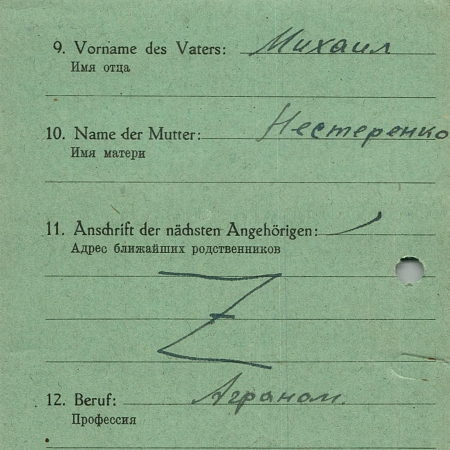 9. Vorname des Vaters: Михаил
Имя отца
10. Name der Mutter: Нестеренко
Имя матери
11. Anschrift der nächsten Angehörigen:
Адрес ближайших родственников
Z
12. Beruf: Аграном.
Профессия